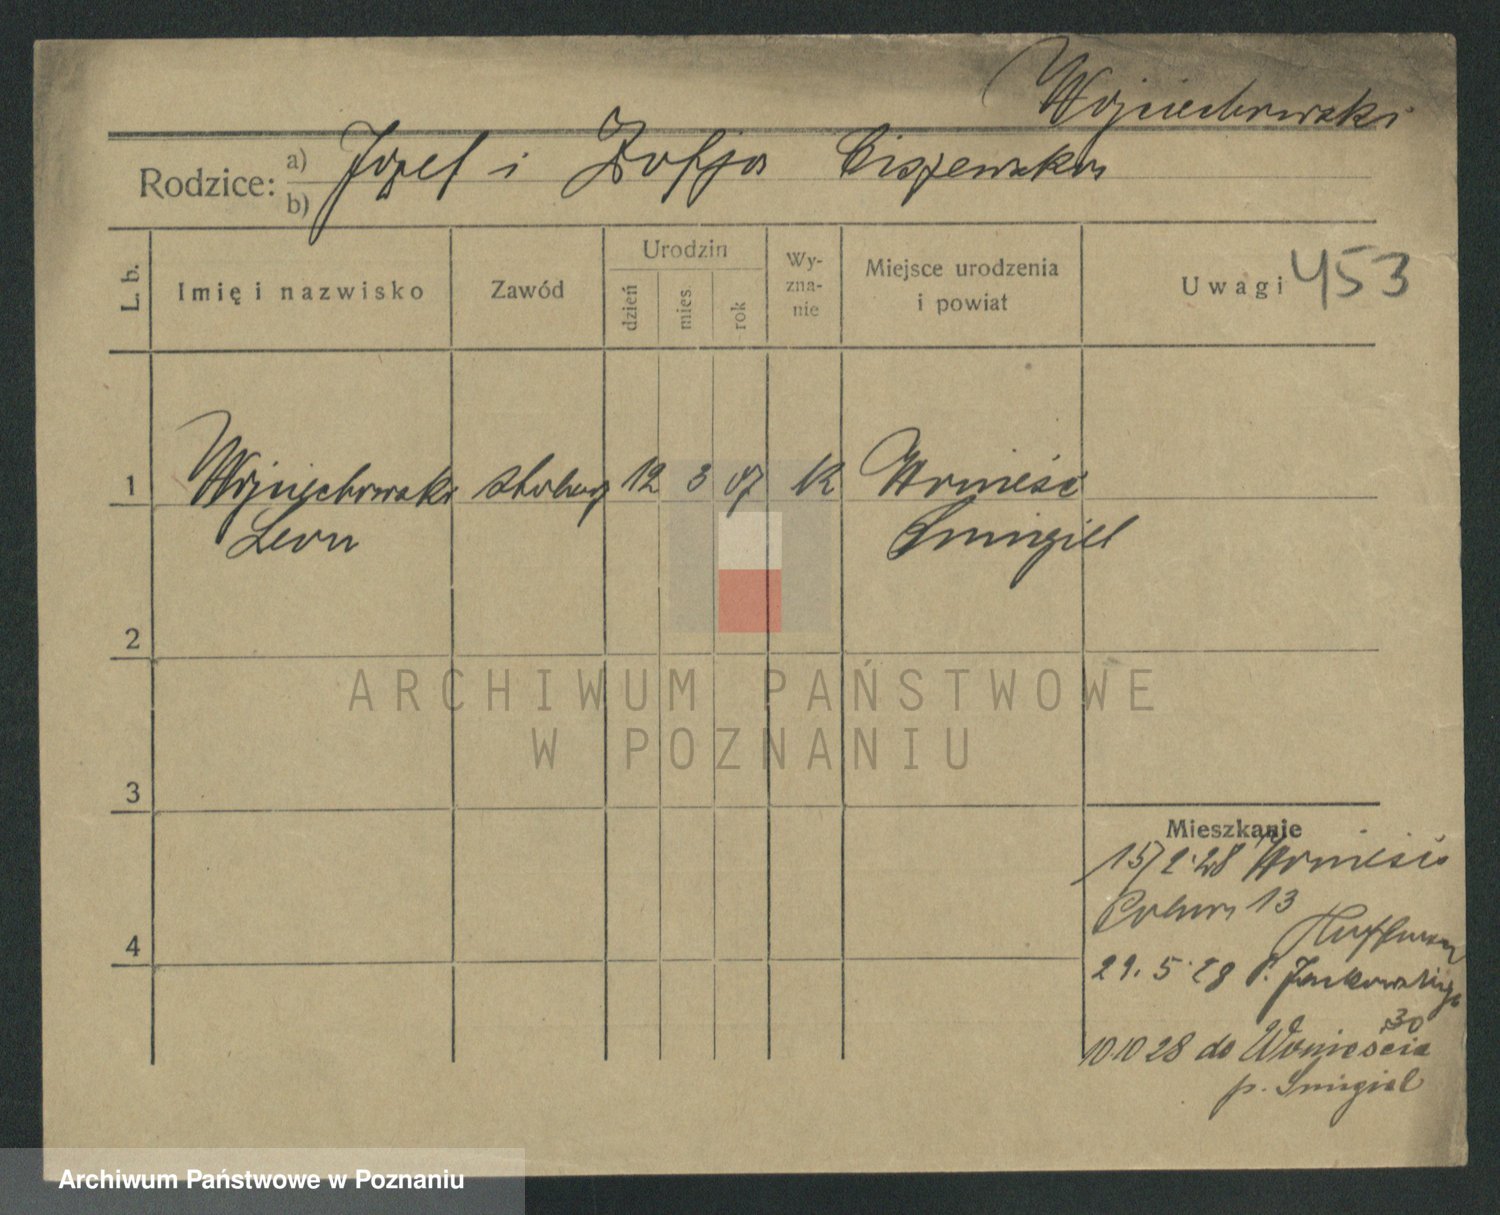 Wojciechowski
Rodzice: a) Józef i Zofja Ciszewska
b)
L. b.
Imię i nazwisko
Zawód
Urodzin
dzień
mies.
rok
Wy-
zna-
nie
Miejsce urodzenia
i powiat
Uwagi 453
1 Wojciechowski stolarz 12 3 07 k Wonieść
Leon Śmigiel
2
3
4
ARCHIWUM PAŃSTWOWE
W POZNANIU
Mieszkanie
15/2.28 Wonieść
13
29.5.28 Jankowskiego
30
10 10 28 do Wonieścia
p. Śmigiel
Archiwum Państwowe w Poznaniu